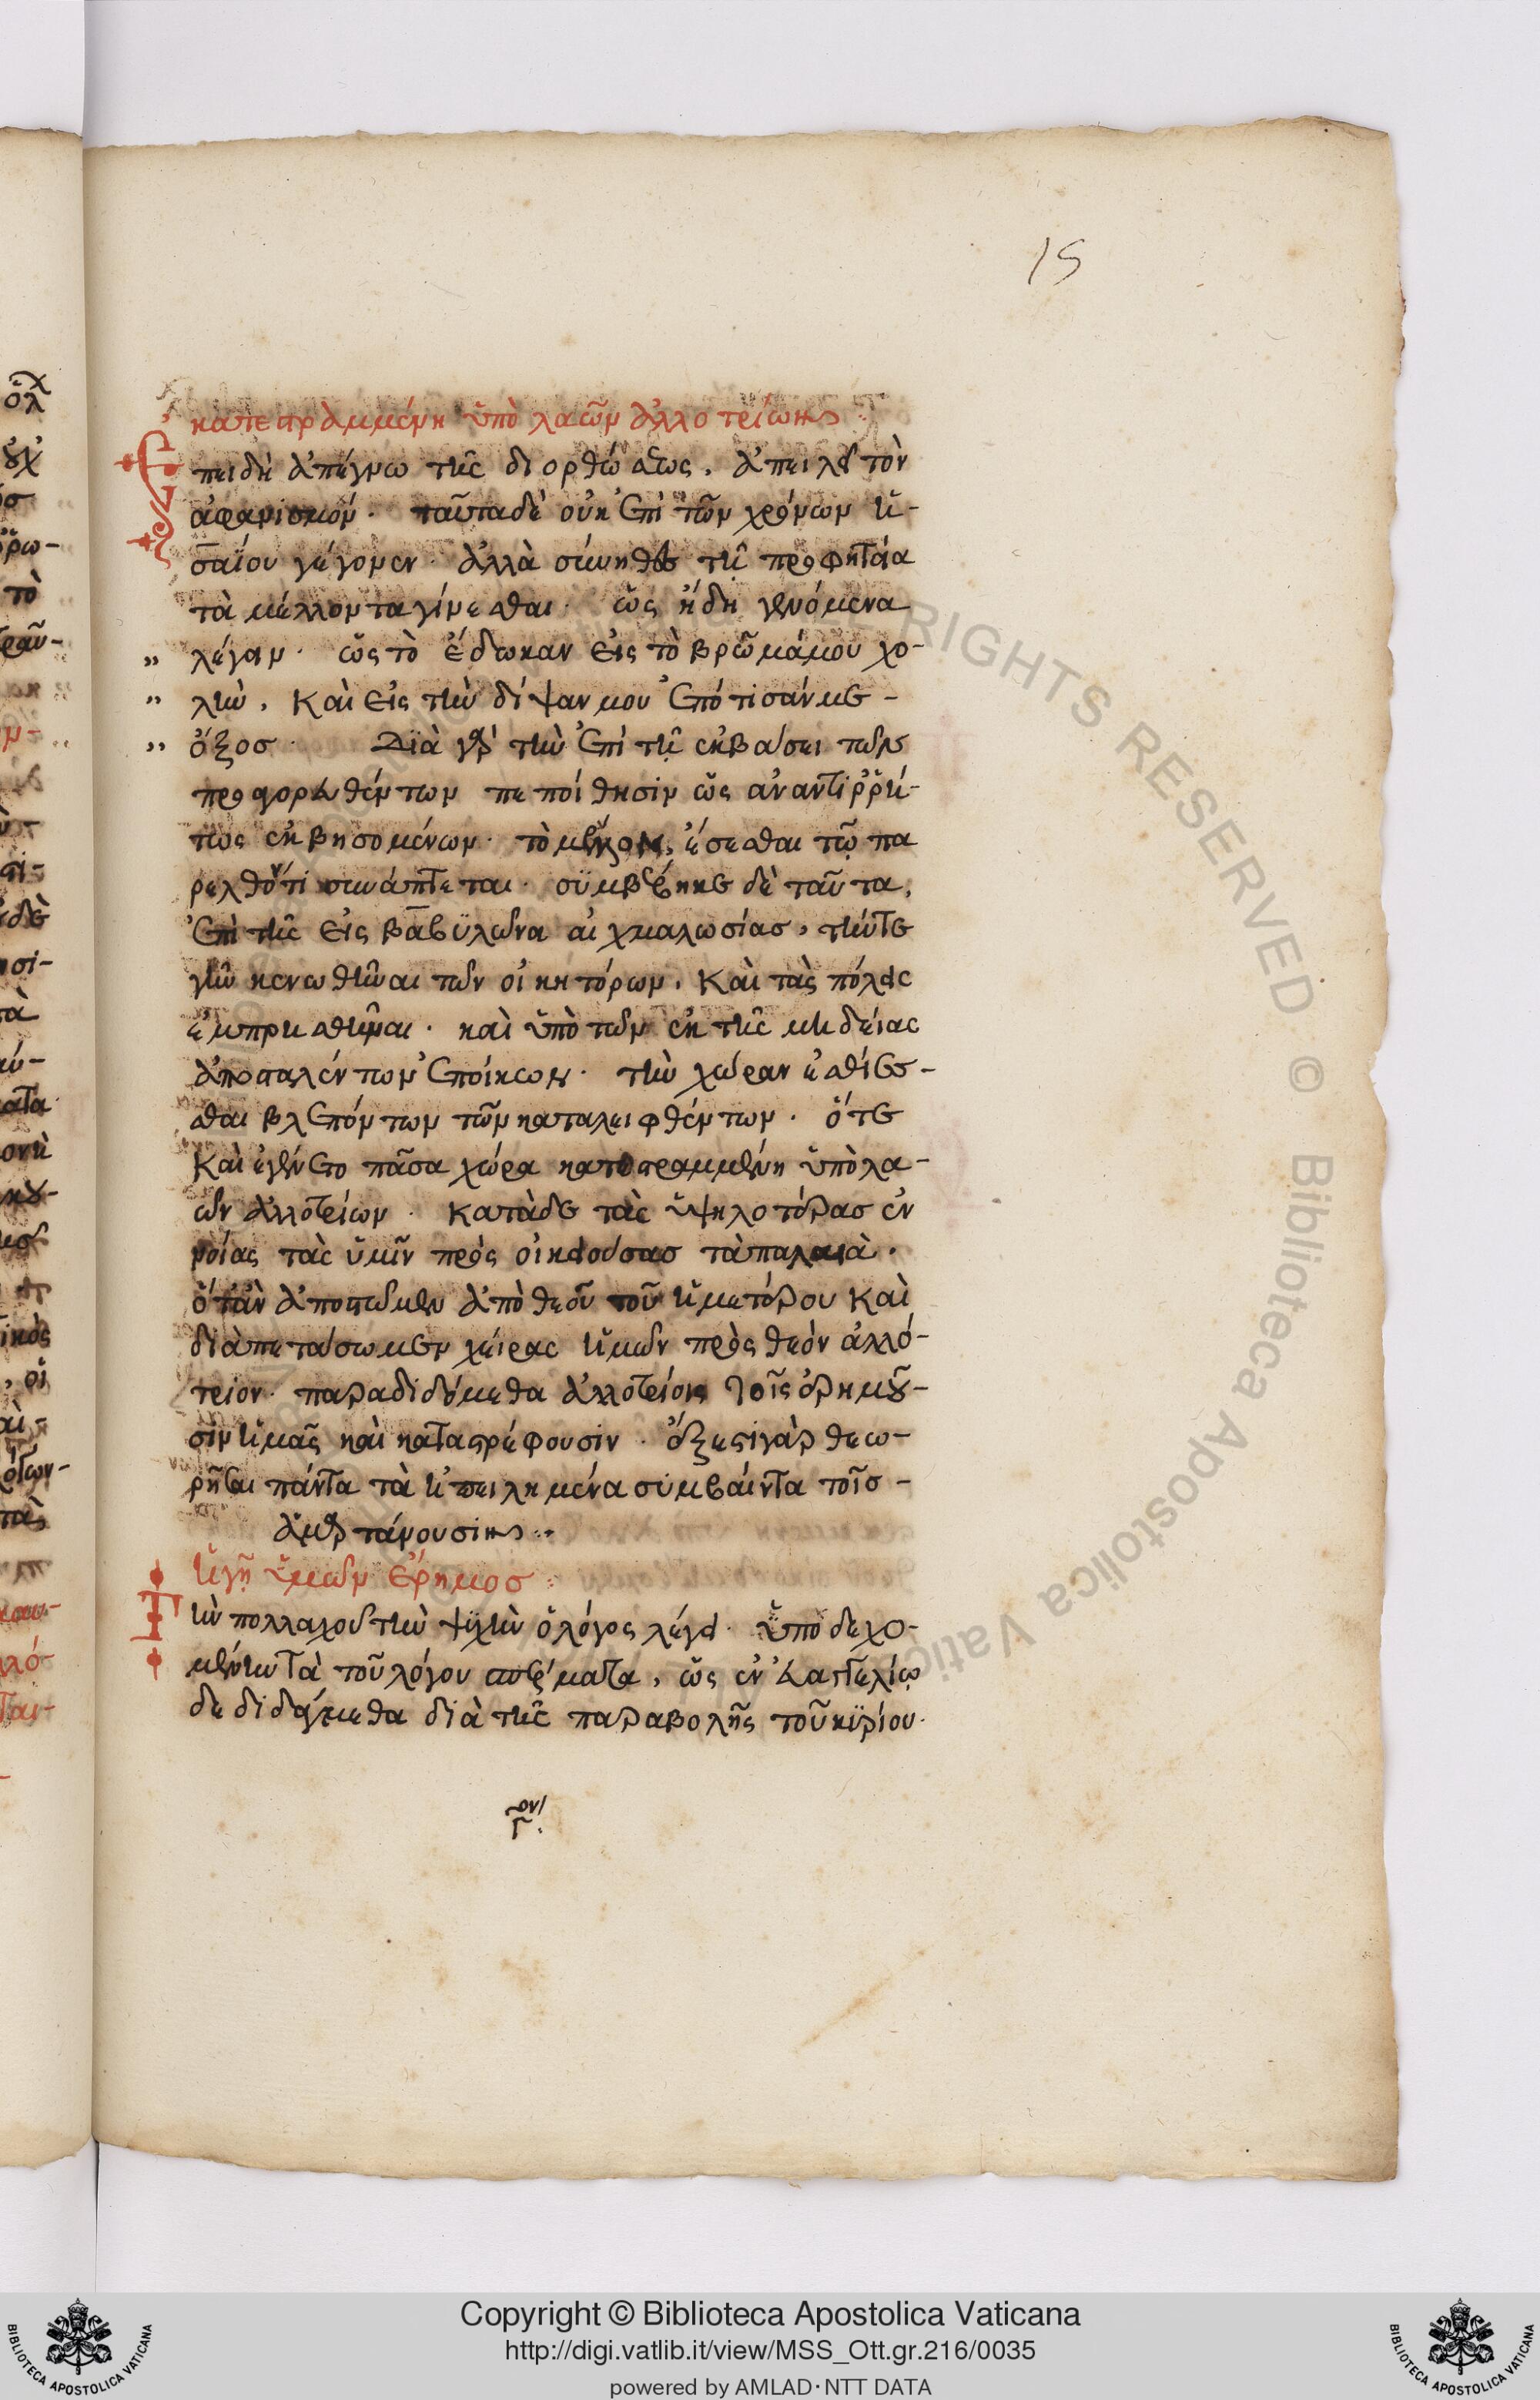 15
κατεστραμμένη ὑπὸ λαῶν ἀλλοτρίων
Ἐπειδὴ ἀπέγνω τῆς διορθώσεως, ἀπειλεῖ τὸν
ἀφανισμόν· ταῦτα δὲ οὐκ ἐπὶ τῶν χρόνων ἡ-
σαΐου γέγονεν· ἀλλὰ σύνηθες τῇ προφητεία
τὰ μέλλοντα γίνεσθαι· ὡς ἤδη γενόμενα
λέγειν· ὡς τὸ ἔδωκαν εἰς τὸ βρῶμά μου χο-
λὴν, καὶ εἰς τὴν δίψαν μου ἐπότισάν με
ὄξος· Διὰ γὰρ τὴν ἐπὶ τῇ ἐκβάσει τῶν
προαγορευθέντων πεποίθησιν ὡς ἀναντιρρή-
τως ἐκβησομένων· τὸ μέλλον ἔσεσθαι τῷ πα
ρελθόντι συνάπτεται· συμβέβηκε δὲ ταῦτα,
ἐπὶ τῆς εἰς βαβυλῶνα αἰχμαλωσίας, τήν τε
γῆν κενωθῆναι τῶν οἰκητόρων, καὶ τὰς πόλεις
ἐμπρησθῆναι· καὶ ὑπὸ τῶν ἐκ τῆς μηδείας
ἀποσταλέντων ἐποίκων· τὴν χώραν ἐσθίεσ-
θαι βλεπόντων τῶν καταλειφθέντων· ὅτε
καὶ ἐγένετο πᾶσα χώρα κατεστραμμένη ὑπὸ λα-
ῶν ἀλλοτρίων· κατὰ δὲ τὰς ὑψηλοτέρας ἐν
νοίας τὰς ὑμῖν προσοικειούσας τὰ παλαιὰ·
ὅτ' ἂν ἀποστῶμεν ἀπὸ θεοῦ τοῦ ἡμετέρου καὶ
διαπετάσωμεν χείρας ἡμῶν πρὸς θεὸν ἀλλό-
τριον· παραδιδόμεθα ἀλλοτρίοις τοῖς ἐρημοῦ-
σιν ἡμᾶς καὶ καταστρέφουσιν· ἔξεστι γὰρ θεω-
ρῆσαι πάντα τὰ ἠπειλημένα συμβαίνοντα τοῖς
ἁμαρτάνουσιν
Ἡ γῆ ὑμῶν ἔρημος
Τὴν πολλαχοῦ τὴν ψυχὴν ὁ λόγος λέγει· ὑποδεχο-
μένην τὰ τοῦ λόγου σπέρματα, ὡς ἐν εὐαγγελίῳ
δεδιδάγμεθα διὰ τῆς παραβολῆς τοῦ κυρίου·
Copyright © Biblioteca Apostolica Vaticana
http://digi.vatlib.it/view/MSS_Ott.gr.216/0035
powered by AMLAD·NTT DATA